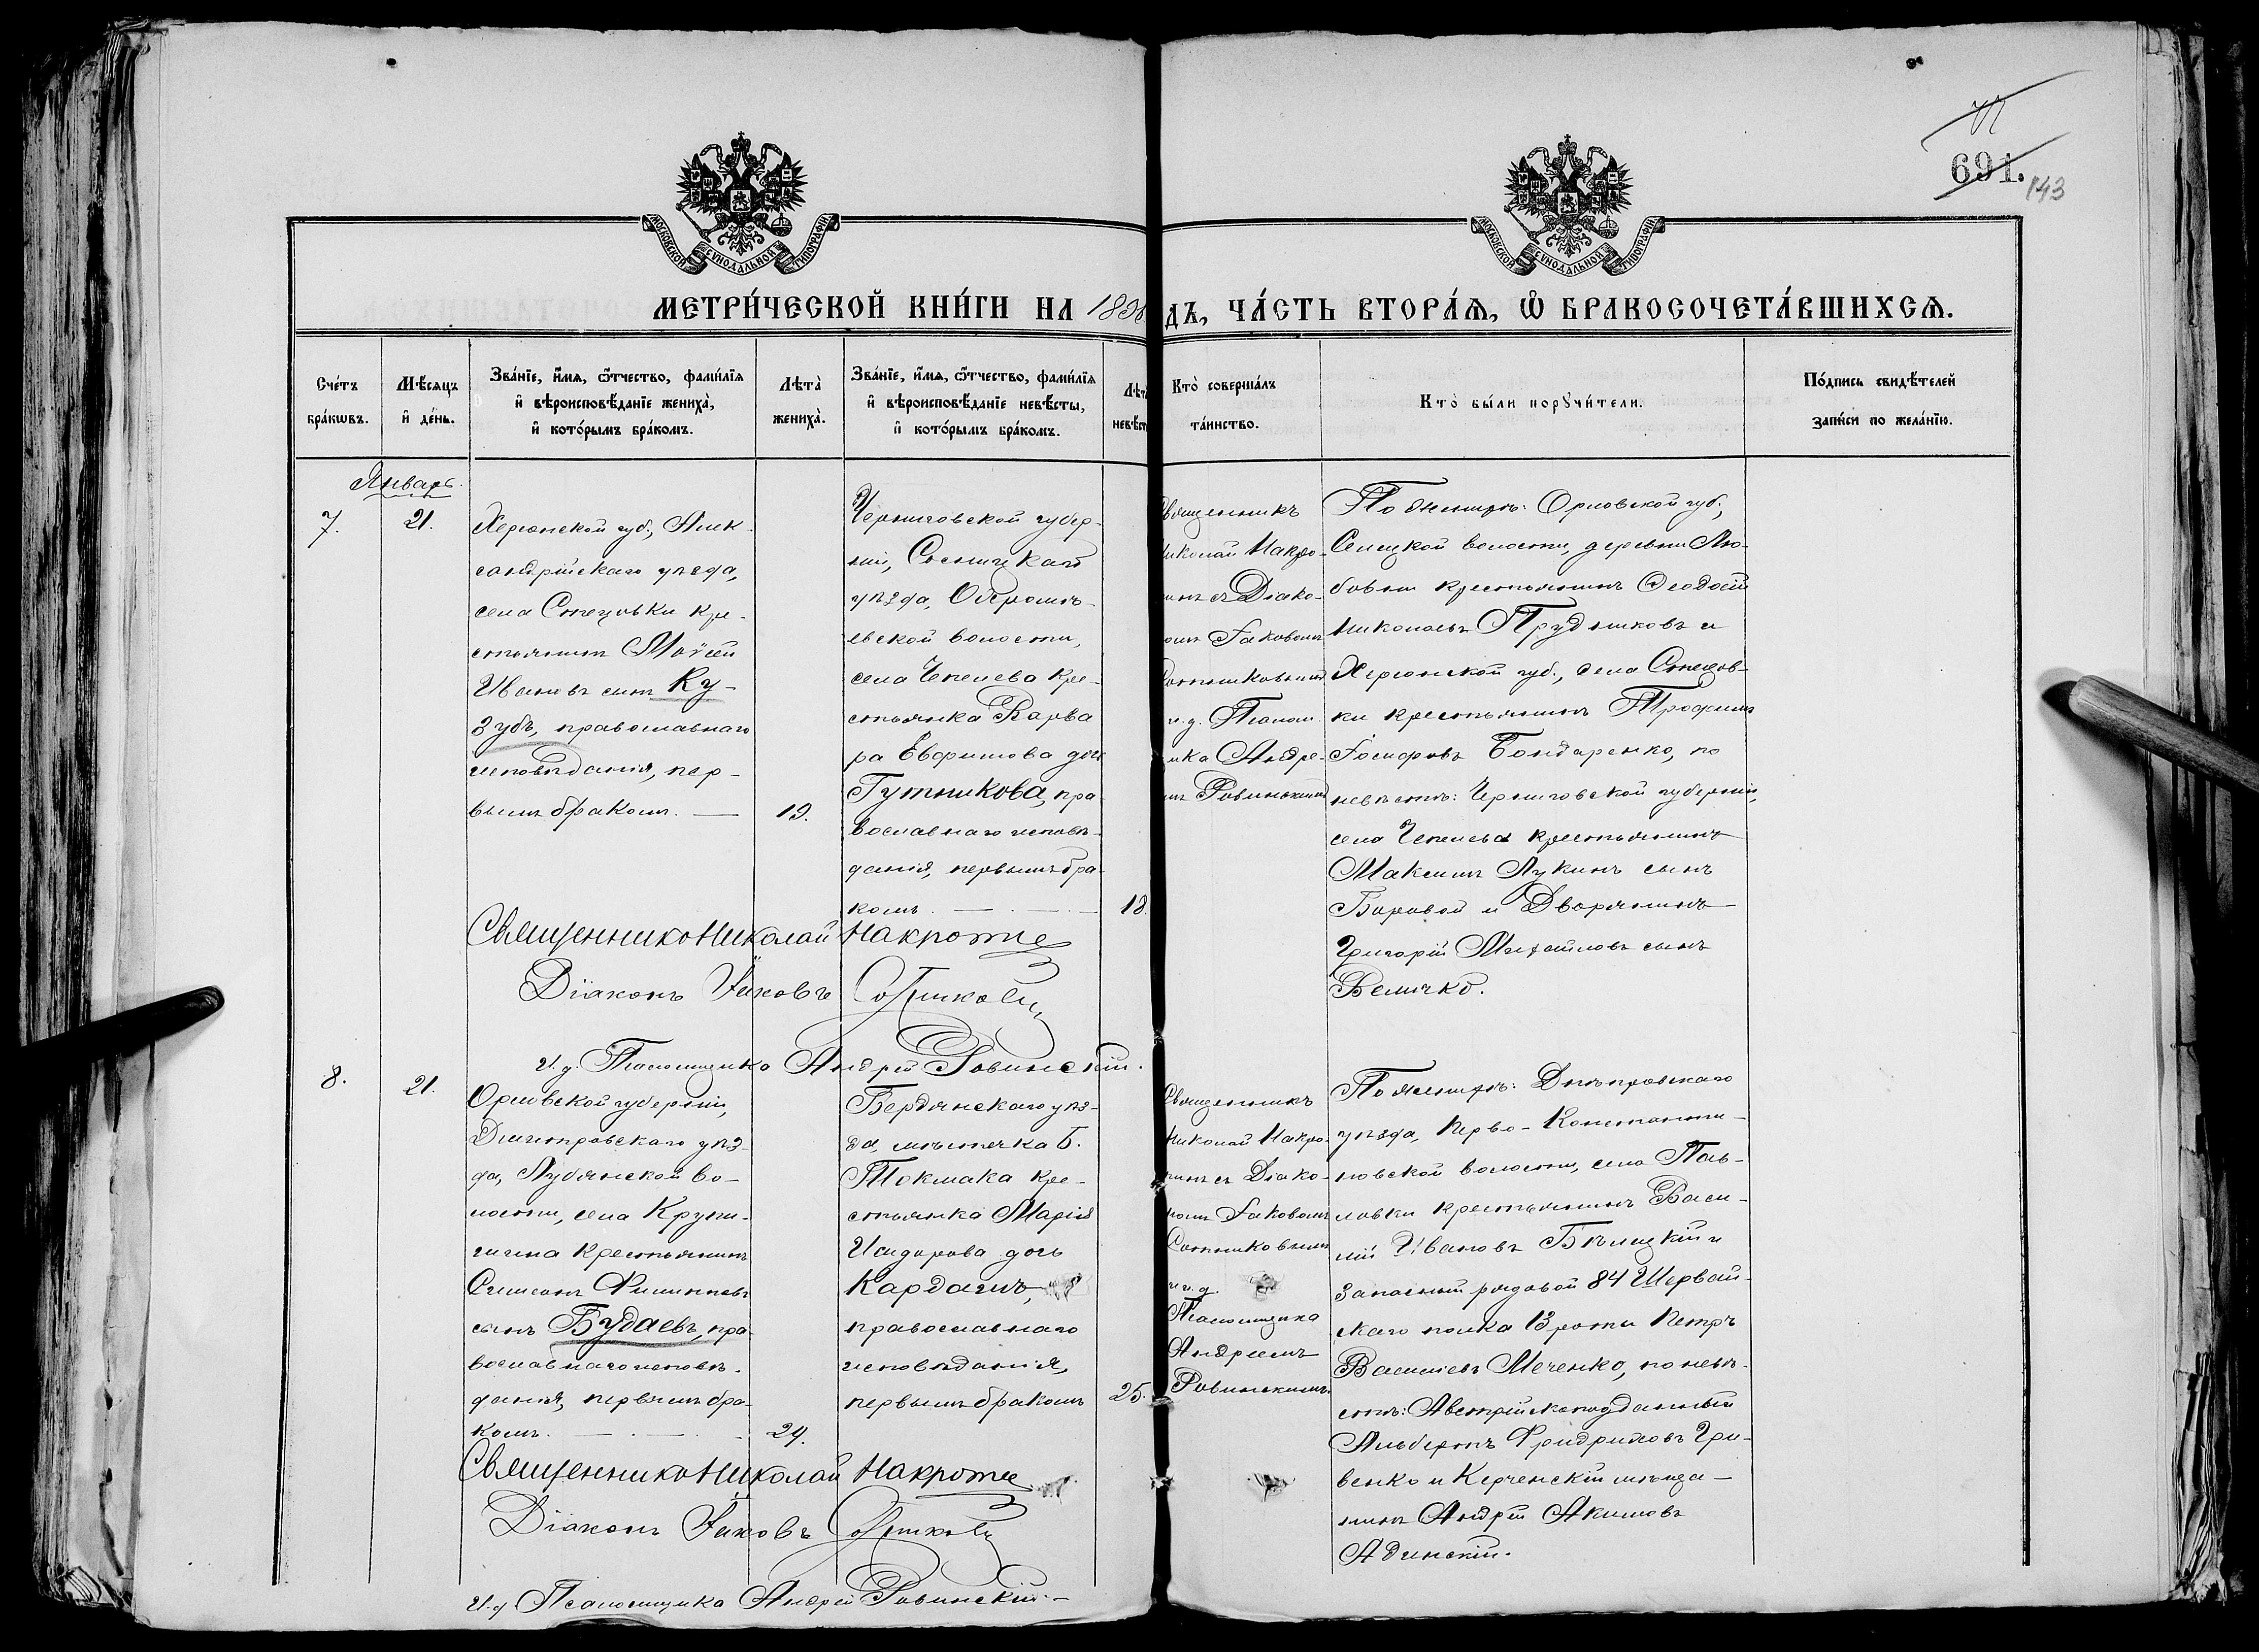 691.
143
МОСКОВСКОЙ СѴНОДАЛЬНОЙ ТИПОГРАФІИ
МОСКОВСКОЙ СѴНОДАЛЬНОЙ ТИПОГРАФІИ
МЕТРИ́ЧЕСКОЙ КНИ́ГИ НА 1898
ДЪ, ЧА́СТЬ ВТОРА́Ѧ, Ѽ БРАКОСОЧЕТА́ВШИХСѦ.
Сче́тъ бра́кѡвъ.
Мѣ́сѧцъ и҆ де́нь.
Зва́нїе, и҆́мѧ, ѻ҆́тчество, фами́лїѧ
и҆ вѣроисповѣ́данїе жениха̀,
и҆ кото́рымъ бра́комъ.
Лѣта̀
жениха̀.
Зва́нїе, и҆́мѧ, ѻ҆́тчество, фами́лїѧ
и҆ вѣроисповѣ́данїе невѣ́сты,
и҆ кото́рымъ бра́комъ.
Лѣта̀
невѣ́ст
Кто̀ соверша́лъ
та́инство.
Кто̀ бы́ли порꙋчи́тели.
По́дпись свидѣ́телей
за́писи по жела́нїю.
Январь.
7.
21.
Херсонской губ., Алек-
сандрійскаго уѣзда,
села Стецовки кре-
стьянинъ Моѵсей
Ивановъ сынъ Ку-
зубъ, православнаго
исповѣданія, пер-
вымъ бракомъ.
19.
Черниговской губер-
ніи, Сосницкаго
уѣзда,
евской волости,
села Чепелева кре-
стьянка Варва
ра Евфимова дочь
Гутникова, пра-
вославнаго исповѣ-
данія, первымъ бра-
комъ.
18.
Священникъ
Николай Макро-
инъ съ Діако-
омъ Іаковомъ
Сотниковымъ
и.д. Псалом
ика Андре-
мъ Ровинскимъ
По женихѣ: Орловской губ.,
Селецкой волости, деревни Лю-
бовни крестьянинъ Ѳеодосій
Николаевъ Прудниковъ и
Херсонской губ., села Стецов-
ки крестьянинъ Трофимъ
Іосифовъ Бондаренко, по
невѣстѣ: Черниговской губерніи,
села Чепелева крестьянинъ
Максимъ Лукинъ сынъ
Боровой и Дворянинъ
Григорій Михайловъ сынъ
Величко.
Священникъ Николай Макротие
Діаконъ Іаковъ Сотниковъ
И.д. Псаломщика Андрей Ровинскій.
8.
21.
Орловской губерніи,
Дмитровскаго уѣз-
да, Лубянской во-
лости, села Крупы-
шина крестьянинъ
Симеонъ Филипповъ
сынъ Будаевъ, пра-
вославнаго исповѣ-
данія, первымъ бра-
комъ.
24.
Бердянскаго уѣз-
да, мѣстечка Б.
Токмака кре-
стьянка Марія
Исидорова дочь
Кардашъ,
православнаго
исповѣданія,
первымъ бракомъ
25.
Священникъ
Николай Макро-
инъ съ Діако-
номъ Іаковомъ
Сотниковымъ
и и.д.
Псаломщика
Андреемъ
Ровинскимъ.
По женихѣ: Днѣпровскаго
уѣзда, Перво-Константи-
новской волости, села Пав-
ловки крестьянинъ Васи-
лій Ивановъ Бѣлицкій и
запасный рядовой 84 Ширван-
скаго полка 13 роты Петръ
Василіевъ Меченко, по невѣ-
стѣ: Австрійскоподданный
Альбертъ Фридриховъ Гри-
венко и Керченскій мѣща-
нинъ Андрей Акимовъ
Адинскій.
Священникъ Николай Макротие
Діаконъ Іаковъ Сотниковъ
И.д. Псаломщика Андрей Ровинскій.